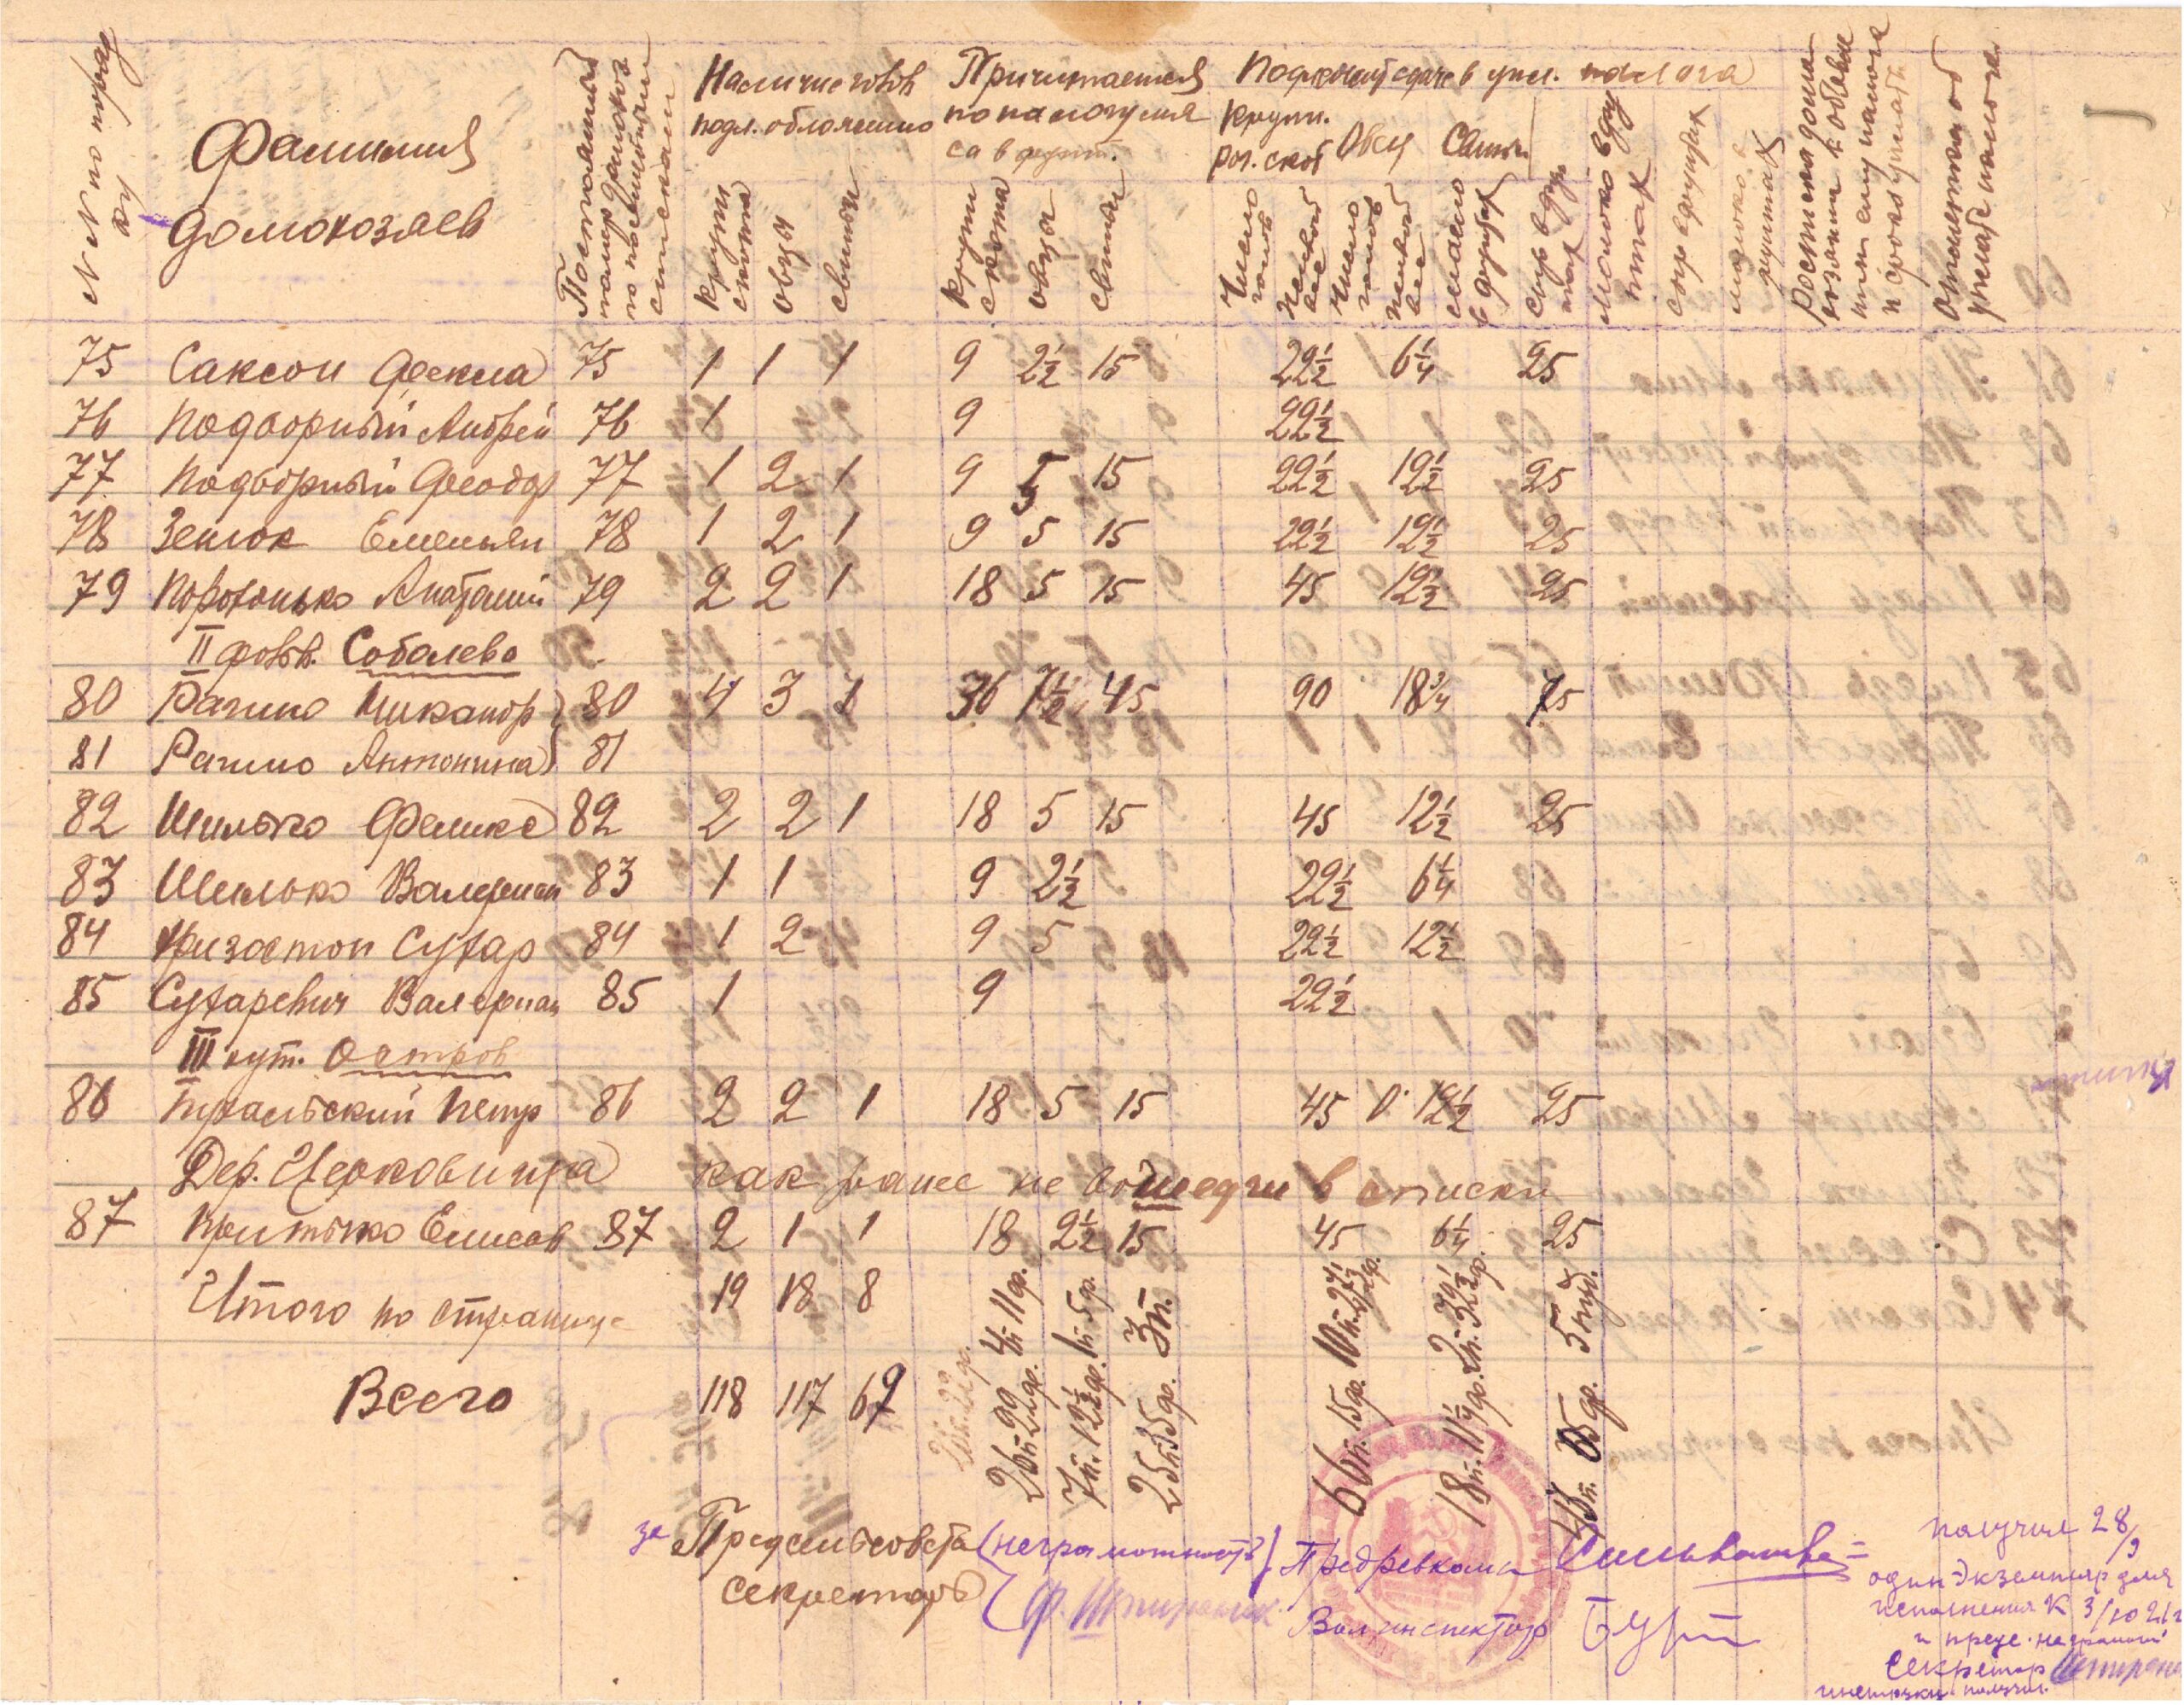 №№ по поряд
ку
Фамилия
домохозяев
Постоянный
номер
по
спискам
Наличие голов
подл. обложению
крупн
скота
Овцы
свиньи
Причитается
по налогу мя
са в фунт.
крупн
скота
овцы
свиньи
Подлежит сдаче в упл. налога
крупн.
рог. скот
Овец
Свин
Число
голов
живой
вес
Число
голов
живой
вес
в фунтах
Сыр в фун
тах
Молоко в фун
тах
сыр в фунтах
молоко в
фунтах
Расписка домо
хозяина к объяв
нии ему налога
и сроков уплаты
отметка об
уплате налога
75 Саксон Фекла 75 1 1 1 9 2½ 15 22½ 6¼ 25
76 Подворный Андрей 76 1 9 22½
77 Подворный Феодор 77 1 2 1 9 5 15 22½ 12½ 25
78 Зенюк Емельян 78 1 2 1 9 5 15 22½ 12½ 25
79 79 2 2 1 18 5 15 45 12½ 25
II фольв. Соболево
80 Рагино Никанор 80 4 3 1 36 7½ 45 90 18¾ 75
81 Рагино Антонина 81
82 Шилько Феликс 82 2 2 1 18 5 15 45 12½ 25
83 Шилько Валериан 83 1 1 9 2½ 22½ 6¼
84 Хризостом Сухар 84 1 2 9 5 22½ 12½
85 Сухаревич Валериан 85 1 9 22½
III хут. Остров
86 Петр 86 2 2 1 18 5 15 45 12½ 25
Дер. Церковища как ранее не вошедши в списки
87 Притычко Елисав 87 2 1 1 18 2½ 15 45 6¼ 25
Итого по странице 19 18 8 4п 11ф. 1п. 5ф. 3п. 5пуд.
Всего 118 117 69 26п 22ф. 7п. 12½ф. 25п 35ф. 66п. 15ф. 18п. 11¼ф.
за Предсельсовета (неграмотность) Предревкома
Секретарь Волинспектор
получил 28/9
один экземпляр для
исполнения к 3/10 21г
и предс. неграмот
Секретарь